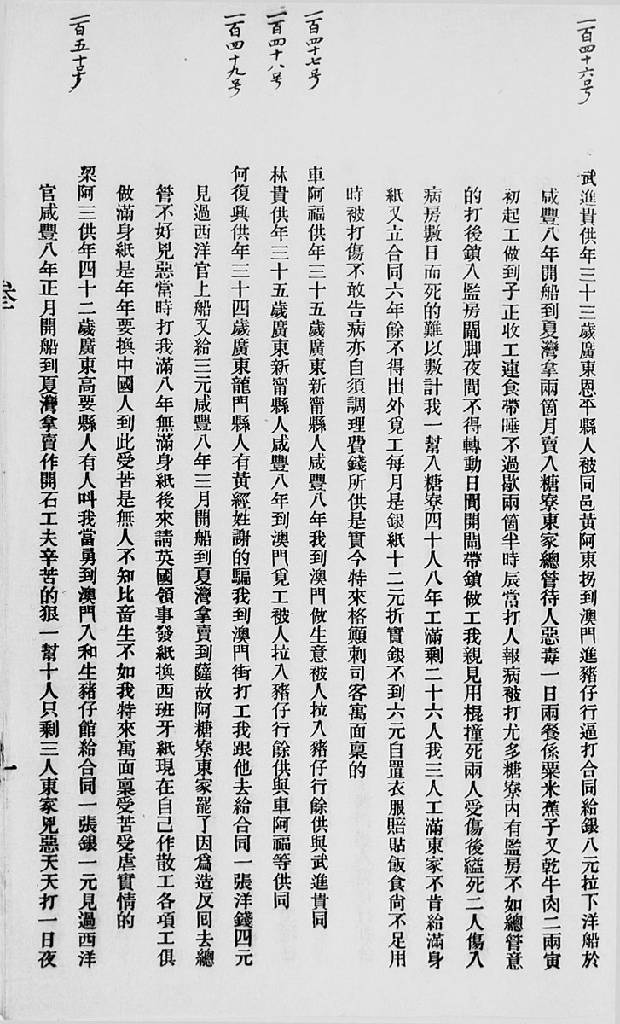 一百四十六号
武進貴供年三十三歲廣東恩平縣人被同邑黃阿東拐到澳門進豬仔行逼打合同給銀八元拉下洋船於
咸豐八年開船到夏灣拿兩箇月賣入糖寮東家總管待人惡毒一日兩餐係粟米蕉子又乾牛肉二兩寅
初起工做到子正收工連食帶睡不過歇兩箇半時辰常打人報病被打尤多糖寮內有監房不如總管意
的打後鎖入監房閘脚夜間不得轉動日間開閘帶鎖做工我親見用棍撞死兩人受傷後縊死二人傷入
病房數日而死的難以數計我一幫入糖寮四十人八年工滿剩二十六人我三人工滿東家不肯給滿身
紙又立合同六年餘不得出外覓工每月是銀紙十二元折實銀不到六元自置衣服賠貼飯食尙不足用
時被打傷不敢告病亦自須調理費錢所供是實今特來格顛剌司客寓面稟的
一百四十七号
車阿福供年三十五歲廣東新甯縣人咸豐八年我到澳門做生意被人拉入豬仔行餘供與武進貴同
一百四十八号
林貴供年三十五歲廣東新甯縣人咸豐八年到澳門覓工被人拉入豬仔行餘供與車阿福等供同
一百四十九号
何復興供年三十四歲廣東龍門縣人有黃經姓謝的騙我到澳門街打工我跟他去給合同一張洋錢四元
見過西洋官上船又給三元咸豐八年三月開船到夏灣拿賣到薩故阿糖寮東家罷了因爲造反囘去總
管不好兇惡當時打我滿八年無滿身紙後來請英國領事發紙換西班牙紙現在自己作散工各項工俱
做滿身紙是年年要換中國人到此受苦是無人不知比畜生不如我特來寓面稟受苦受虐實情的
一百五十号
梁阿三供年四十二歲廣東高要縣人有人叫我當勇到澳門入和生豬仔館給合同一張銀一元見過西洋
官咸豐八年正月開船到夏灣拿賣作開石工夫辛苦的狠一幫十人只剩三人東家兇惡天天打一日夜